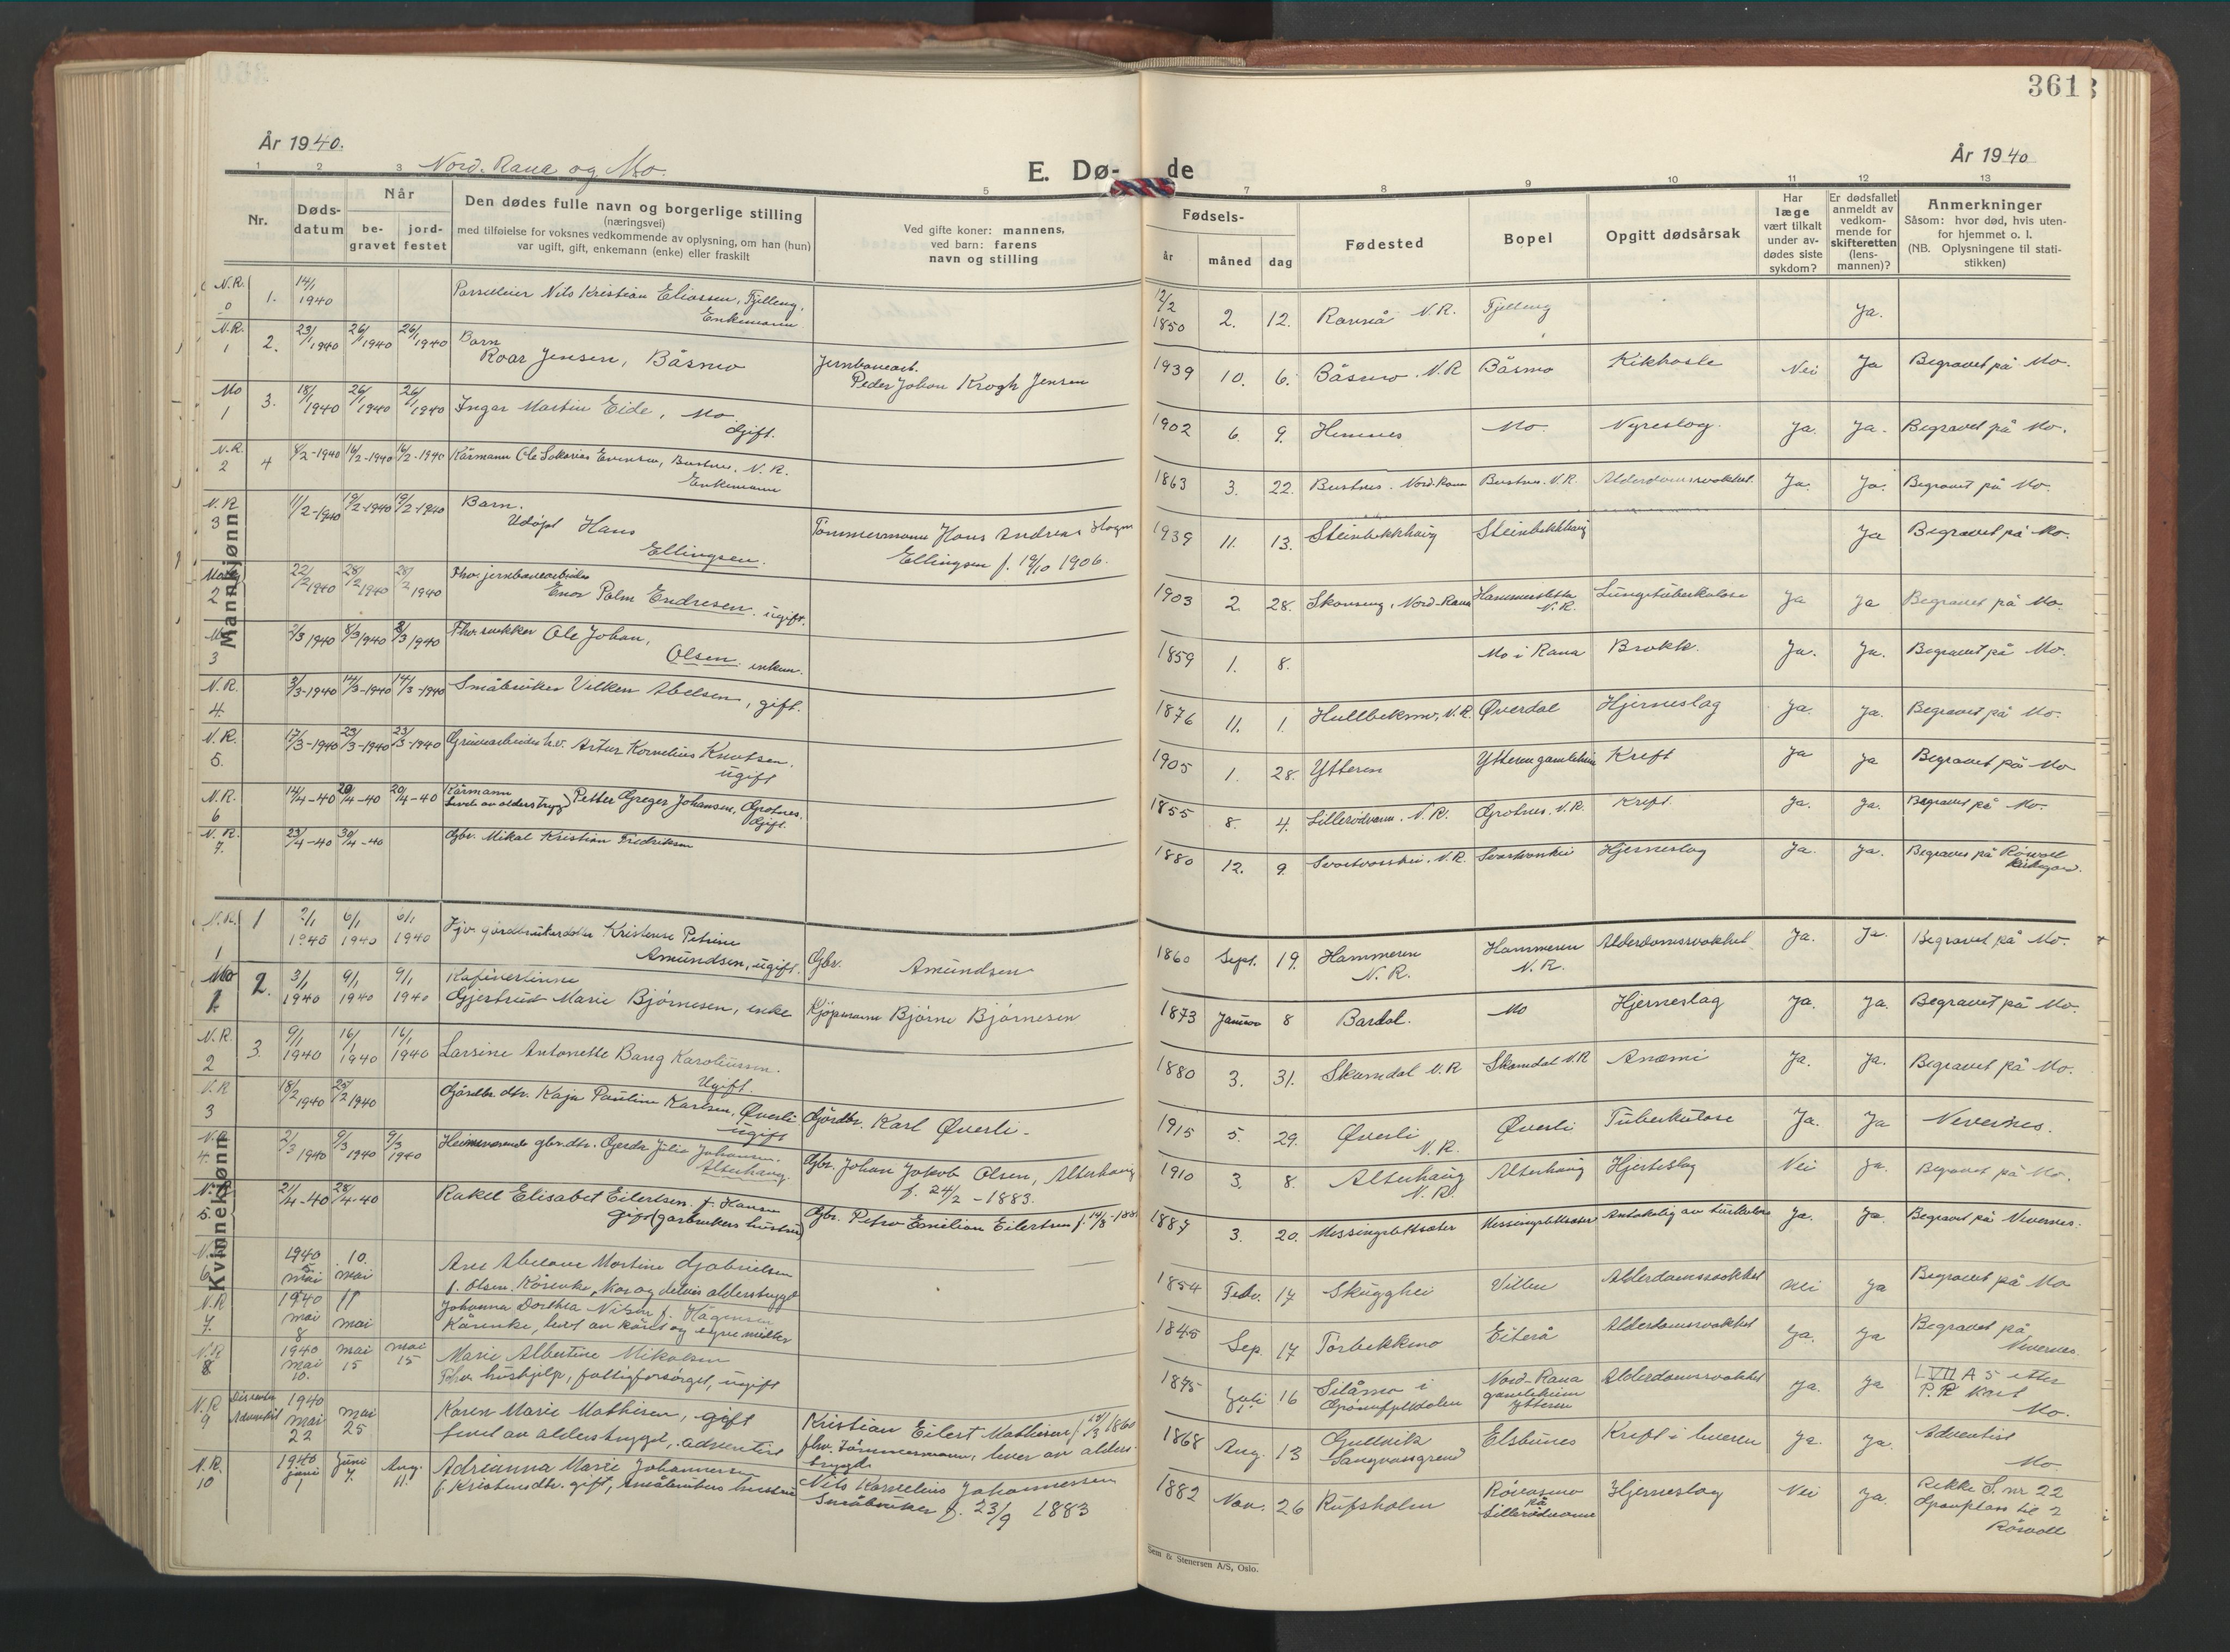 361
År 1940.
Nord-Rana og Mo.
E. Dø-
de
År 1940
1 2 3 5 7 8 9 10 11 12 13
Nr.
Døds-
datum
Når
be-
gravet
jord-
festet
Den dødes fulle navn og borgerlige stilling
(næringsvei)
med tilføielse for voksnes vedkommende av oplysning, om han (hun)
var ugift, gift, enkemann (enke) eller fraskilt
Ved gifte koner: mannens,
ved barn: farens
navn og stilling
Fødsels-
år måned dag
Fødested
Bopel
Opgitt dødsårsak
Har
læge
vært tilkalt
under av-
dødes siste
sykdom?
Er dødsfallet
anmeldt av
vedkom-
mende for
skifteretten
(lens-
mannen)?
Anmerkninger
Såsom: hvor død, hvis uten-
for hjemmet o. l.
(NB. Oplysningene til stati-
stikken)
Mannkjønn
N.R. 0 1. 14/1 1940 Nils Kristian Eliassen, Fjelleng. Enkemann 12/2 1850 2. 12. N.R. Fjelleng Ja.
N.R. 1 2. 23/1 1940 26/1 1940 26/1 1940 Barn
Roar Jensen, Båsmo Jernbanearb. Peder Johan Krogh Jensen 1939 10. 6. Båsmo. N.R Båsmo Kikhoste Nei Ja Begravet på Mo.
Mo 1 3. 18/1 1940 26/1 1940 26/1 1940 Ingar Martin Eide, Mo. Gift. 1902 6. 9. Hemnes Mo. Nyreslag. Ja. Ja. Begravet på Mo.
N.R. 2 4 8/2-1940 16/2-1940 16/2-1940 Kårmann Ole Sakarias Evensen, Bustnes. N.R. Enkemann 1863 3. 22. Bustnes. Nord-Rana Bustnes. N.R. Alderdomssvakhet Ja. Ja. Begravet på Mo.
N.R 3 11/2-1940 19/2-1940 19/2-1940 Barn.
Udøpt Hans
Ellingsen. Tømmermann Hans Andreas Hagen
Ellingsen f. 19/10 1906. 1939 11. 13. Steinbekkhaug Steinbekkhaug Ja Begravet på Mo.
2 22/2 1940 28/2 1940 28/2 1940 Fhv. jernbanearbeider
Palm Endresen. ugift. 1903 2. 28. Nord-Rana N.R. Lungetuberkulose Ja Ja Begravet på Mo.
Mo 3 2/3 1940 8/3 1940 8/3 1940 Ole Johan,
Olsen. enkem. 1859 1. 8. Mo i Rana Brokk. Ja. Ja. Begravet på Mo.
N.R. 4. 3/3-1940 14/3-1940 14/3-1940 Småbruker Vilken Abelsen, gift. 1876 11. 1. N.R. Øverdal Hjerneslag Ja. Ja. Begravet på Mo.
N.R. 5. 17/3-1940 23/3-1940 23/3-1940 Artur Kornelius Knutsen.
ugift 1905 1. 28. Ytteren Ytteren gamleheim Kreft Ja Ja Begravet på Mo
N.R. 6 14/4-40 20/4-40 20/4-40 Kårmann
Levde av alderstrygd Petter Greger Johansen, Grotnes.
Gift. 1855 8. 4. N.R. Grotnes. N.R. Kreft. Ja. Ja. Begravet på Mo.
N.R. 7. 23/4-40 30/4-40 Gbr. Mikal Kristian Fredriksen 1880 12. 9. N.R. Hjerneslag Ja. Ja. Begravet på Røvoll
Kirkegård.
Kvinnekjønn
N.R. 1 1 2/1 1940 6/1 1940 6/1 1940 Kristense Petrine
Amundsen, ugift. Gbr. Amundsen 1860 Sept. 19. Hammeren
N.R. Hammeren
N.R. Alderdomssvakhet Ja. Ja. Begravet på Mo.
Mo 1 2. 3/1 1940 9/1 1940 9/1 1940 Kafévertinne
Gjertrud Marie Bjørnesen, enke Kjøpmann Bjørne Bjørnesen 1873 Januar 8 Bardal. Mo Hjerneslag Ja. Ja. Begravet på Mo.
N.R. 2 3. 9/1 1940 16/1 1940 16/1 1940 Larsine Antonette Bang Karoliussen.
Ugift. 1880 3. 31. Skamdal N.R Skamdal N.R Anæmi Ja. Ja. Begravet på Mo.
N.R 3 18/2 1940 25/2 1940 Gårdbr. dtr. Kaja Pauline Karlsen, Øverli
ugift Gårdbr. Karl Øverli 1915 5. 29. Øverli
N.R. Øverli Tuberkulose Ja. Ja Nevernes.
N.R. 4. 2/3 1940 9/3 1940 9/3 1940 Heimeværende gbr.dtr. Gerda Julie Johansen.
Alterhaug. Gbr. Johan Jakob Olsen, Alterhaug
f. 24/2-1883. 1910 3. 8. Alterhaug
N.R. Alterhaug Hjerteslag Nei Ja. Begravet på Mo.
N.R. 5. 21/4-40 28/4-40 Rakel Elisabet Eilertsen f. Hansen
gift (gårbrukers hustru) Gbr. Petro Emilian Eilertsen f. 14/3-188 1887 3. 20. Messingslettsæter Messingslettsæter Ja. Ja. Begravet på Nevernes.
6 1940 5. mai 10. mai Martine Gabrielsen
f. Olsen. Kårenke, kår og delvis alderstrygd 1854 Febr. 17 Skugghei Villen Alderdomssvakhet Nei Ja Begravet på Mo
N.R 7. 1940 mai 8 11 mai Johanna Dorthea Nilsen f. Hågensen
Kårenke, levet av kåret og egne midler 1845 Sep. 17 Torbekkmo Eiterå Alderdomssvakhet Ja. Ja Begravet på
Nevernes.
N.R. 8 1940 mai 10. mai 15 mai 15 Marie Albertine Mikalsen
Fhv. hushjelp, fattigforsørget, ugift 1875 Juli 16 i Nord-Rana
gamleheim
Ytteren Alderdomssvakhet Ja. Ja L VII A 5 etter
P.R kart
Mo.
N.R 9 Adventist 1940 mai 22 mai 25 Karen Marie Mathisen, gift
levet av alderstrygd, adventist Kristian Eilert Mathisen f 13/3 1860
fhv. tømmermann, lever av alders-
trygd 1868 Aug. 13 Gullvik
Elsbunes Kreft i leveren Ja. Ja. Adventist
Mo
N.R. 10 1940 juni 1 Juni 7. Aug. 11. Adrianna Marie Johannessen
f. Kristensdtr. gift, Småbrukers hustru Nils Kornelius Johannessen
Småbruker f. 23/9 1883 1882 Nov. 26 Rufsholm Hjerneslag Nei Ja. Rekke S. nr 22
Røvoll
Sem & Stenersen A/S, Oslo.